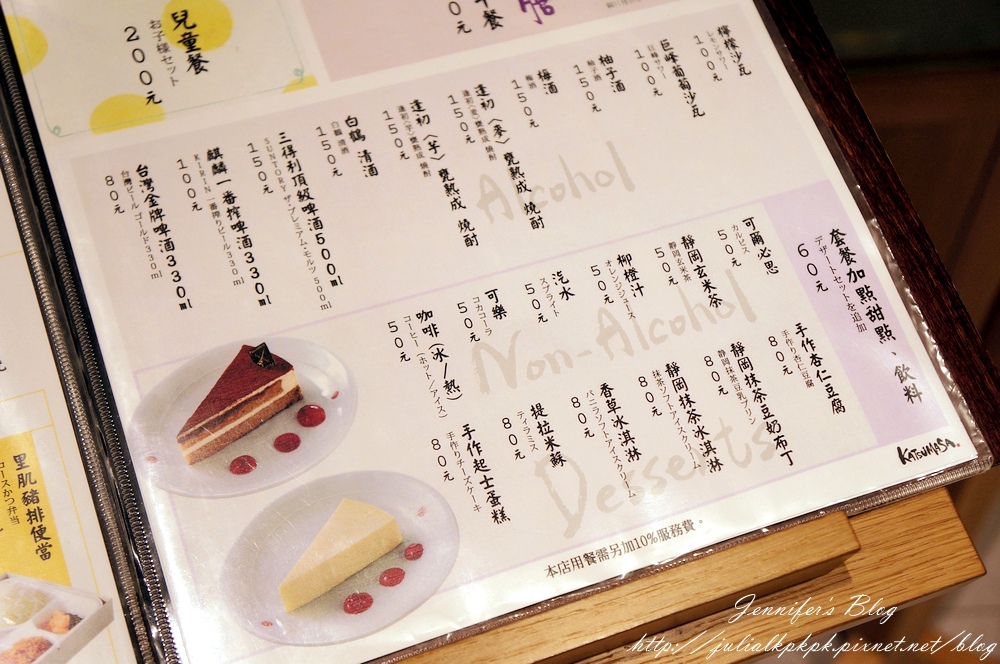 兒童餐
お子様セット
200元
檸檬沙瓦
レモンサワー
100元
巨峰葡萄沙瓦
巨峰サワー
100元
柚子酒
柚子酒
150元
梅酒
梅酒
150元
逢初〈麥〉甕熟成 燒酎
逢初〈麦〉甕熟成 焼酎
150元
逢初〈芋〉甕熟成 燒酎
逢初〈芋〉甕熟成 焼酎
150元
白鶴 清酒
白鶴 清酒
150元
三得利頂級啤酒500ml
SUNTORY ザ・プレミアム・モルツ 500ml
150元
麒麟一番搾啤酒330ml
KIRIN 一番搾りビール330ml
100元
台灣金牌啤酒330ml
台湾ビール ゴールド330ml
80元
Alcohol
套餐加點甜點、飲料
デザートセットを追加
60元
可爾必思
カルピス
50元
靜岡玄米茶
静岡玄米茶
50元
柳橙汁
オレンジジュース
50元
汽水
スプライト
50元
可樂
コカコーラ
50元
咖啡(冰/熱)
コーヒー(ホット/アイス)
50元
Non-Alcohol
手作杏仁豆腐
手作り杏仁豆腐
80元
靜岡抹茶豆奶布丁
静岡抹茶豆乳プリン
80元
靜岡抹茶冰淇淋
抹茶ソフトアイスクリーム
80元
香草冰淇淋
バニラソフトアイスクリーム
80元
提拉米蘇
ティラミス
80元
手作起士蛋糕
手作りチーズケーキ
80元
Desserts
KATSUMASA
本店用餐需另加10%服務費。
里肌豬排便當
ロースかつ弁当
Jennifer's Blog
http://julialkpkpk.pixnet.net/blog